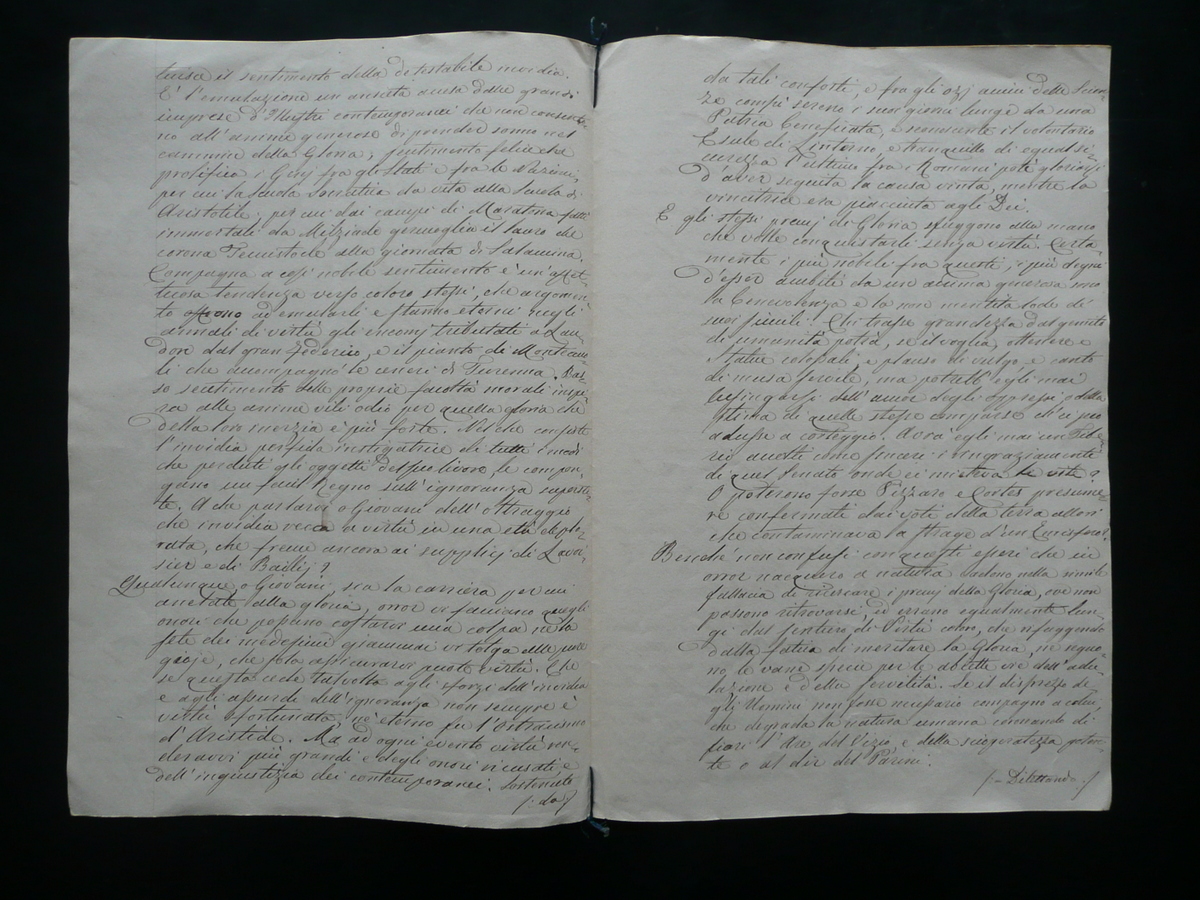 teressa il sentimento della detestabile invidia.
È l'emulazione un ansietà accesa dalle grandi
imprese d'Illustri contemporanei che non consento-
no all'anime generose di prender sonno nel
cammino della Gloria; sentimento felice che
prolifica i Genj fra gli Stati e fra le Nazioni,
per cui la Scuola Socratica da vita alla Scuola di
Aristotile, per cui dai campi di Maratona fatti
immortale da Milziade germoglia il lauro che
corona Temistocle alla giornata di Salamina.
Compagna a così nobile sentimento è un'affet-
tuosa tendenza verso coloro stessi, che argomen-
to offrono ad emularli e stanno eterni negli
annali di virtù gli encomj tributati a Lau-
don dal gran Federico, e il pianto di Montecuco-
li che accompagnò le ceneri di Turenna. Bas-
so sentimento delle proprie facoltà morali inspi-
ra alle anime vili odio per quella gloria che
della loro inerzia è più forte. Nel che consiste
l'invidia perfida instigatrice di tutti i modi
che perduti gli oggetti del suo livore le compon-
gano un facil Regno sull'ignoranza supersti-
te. A che parlarvi o Giovani dell'oltraggio
che invidia reca a virtù in una età deplo-
rata, che freme ancora ai supplizj di Lavoi-
sier e di Bailij?
Qualunque, o Giovani, sia la carriera per cui
anelate alla gloria, onor vi facciano quegli
onori che possono costarvi una colpa nè la
sete dei medesimi giammai vi tolga alle pure
gioje, che sola assicurarvi puote virtù. Che
se questa cede talvolta agli sforzi dell'invidia
e agli assurdi dell'ignoranza non sempre è
virtù sfortunata, nè eterno fu l'Ostracismo
d'Aristide. Ma ad ogni evento virtù ren-
deravvi più grandi e degli onori ricusati, e
dell'ingiustizia dei contemporanei. Sostenuto
/: da /
da tali conforti, e fra gli ozj ameni delle Scien-
ze compì sereno i suoi giorni lunge da una
Patria beneficata, e sconoscente il volontario
Esule di Linterno, e tranquillo di egual si-
curezza l'ultimo fra i Romani potè gloriarsi
d'aver seguita la causa vinta, mentre la
vincitrice era piacciuta agli Dei.
E gli stessi premj di Gloria sfuggono alla mano
che volle conquistarli senza virtù. Certa-
mente i più nobili fra questi, i più degni
d'esser ambiti da un anima generosa sono
la benevolenza e la non mentita lode di
suoi simili! Chi trasse grandezza dal gemito
di umanità potrà, se il voglia, ottenere e
statue colossali, e plauso di vulgo, e canto
di musa servile, ma potrebb' egli mai
lusingarsi dell'amor degli oppressi, e della
stima di quelle stesse
adusse a corteggio. Avrà egli mai un Tibe-
rio avuti come sinceri i ringraziamenti
di quel Senato onde ei mieteva le vite?
O poterono forse Pizzaro e Cortes presume-
re confermati dai voti della terra allori
che contaminava la strage d'un Emisfero?
Benchè non confusi con questi esseri che in
orror nacquero a natura cadono nella simile
fallacia di ricercare i premj della Gloria, ove non
possono ritrovarsi, ed errano egualmente lun-
gi dal sentiero di Virtù coloro, che rifuggendo
dalla fatica di meritare la Gloria, ne segno-
no le vane specie per le abiette vie dell'adu-
lazione e della servilità. Se il disprezzo de-
gli Uomini non fosse necessario compagno a colui,
che degrada la natura umana coronando di
fiori l'Are del Vizio, e della scioperatezza poten-
te o al dir del Parini.
/: Dilettando. /